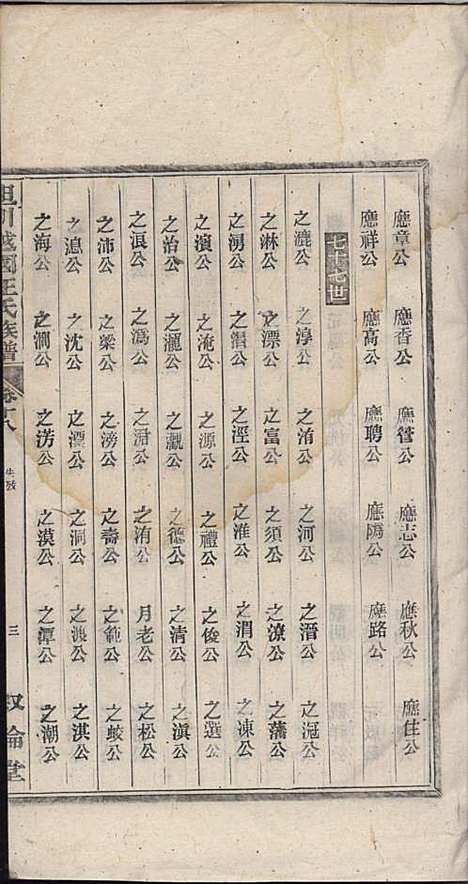 應章公 應香公 應管公 應志公 應秋公 應佳公
應祥公 應高公 應聘公 應陽公 應路公
七十七世
之漉公 之淳公 之洧公 之河公 之溍公 之滋公
之淋公 之漂公 之富公 之須公 之潦公 之藩公
之湧公 之潛公 之涇公 之淮公 之渭公 之凍公
之濱公 之淹公 之源公 之禮公 之俊公 之選公
之治公 之灑公 之瀛公 之德公 之清公 之滇公
之浪公 之溈公 之湑公 之洧公 月老公 之松公
之沛公 之梁公 之滂公 之壽公 之範公 之蛟公
之淐公 之沈公 之漂公 之洞公 之渙公 之淇公
之海公 之澗公 之涝公 之漠公 之潭公 之潮公
旦川越國汪氏族譜 卷十八 生歿 三 叙倫堂